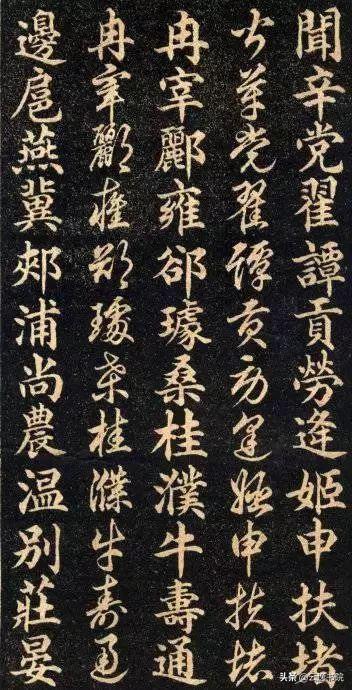 聞辛党翟譚貢勞逄姬申扶堵
聞辛党翟譚貢勞逄姬申扶堵
冉宰酈雍郤璩桑桂濮牛壽通
冉宰酈雍郤璩桑桂濮牛壽通
邊扈燕冀郟浦尚農温別莊晏
头条